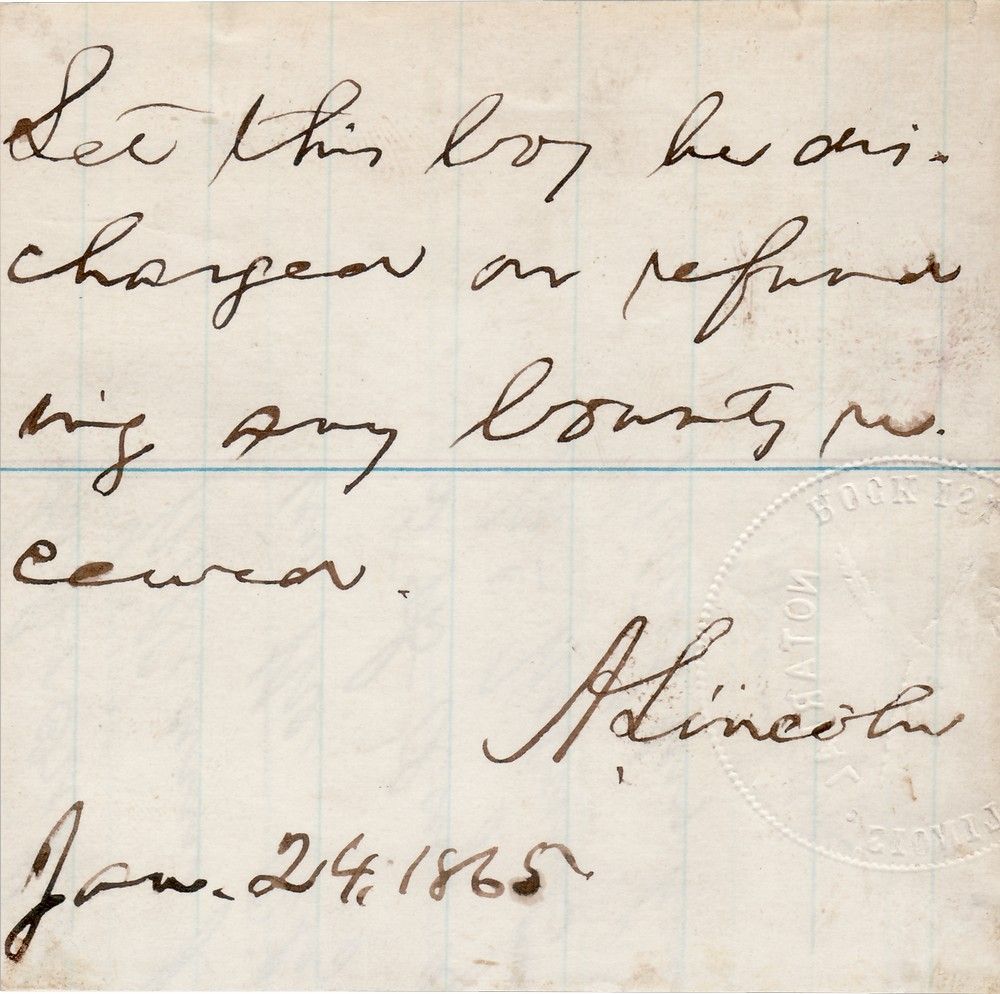 Let this boy be dis-
charged on refund
ing any bounty re-
ceived.
A. Lincoln
Jan. 24, 1865
ROCK ISL
NOTARY
ILLINOIS